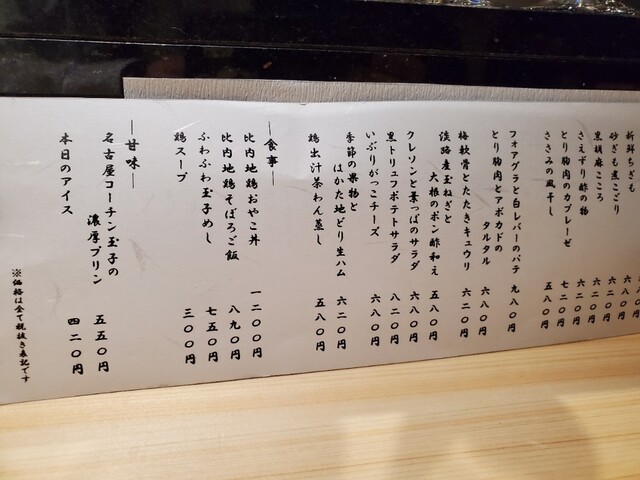 新鮮ちぎも
砂ぎも煮こごり
黒胡麻こころ
さえずり酢の物
とり胸肉のカプレーゼ
七二〇円
ささみの風干し
五八〇円
フォアグラと白レバーのパテ
九八〇円
とり胸肉とアボカドの
タルタル
六八〇円
梅軟骨とたたきキュウリ
六二〇円
淡路産玉ねぎと
大根のポン酢和え
五八〇円
クレソンと葉っぱのサラダ
六八〇円
黒トリュフポテトサラダ
八二〇円
いぶりがっこチーズ
六八〇円
季節の果物と
はかた地どり生ハム
六二〇円
鶏出汁茶わん蒸し
五八〇円
―食事―
比内地鶏おやこ丼
一二〇〇円
比内地鶏そぼろご飯
八九〇円
ふわふわ玉子めし
七五〇円
鶏スープ
三〇〇円
―甘味―
名古屋コーチン玉子の
濃厚プリン
五五〇円
本日のアイス
四二〇円
※価格は全て税抜き表記です